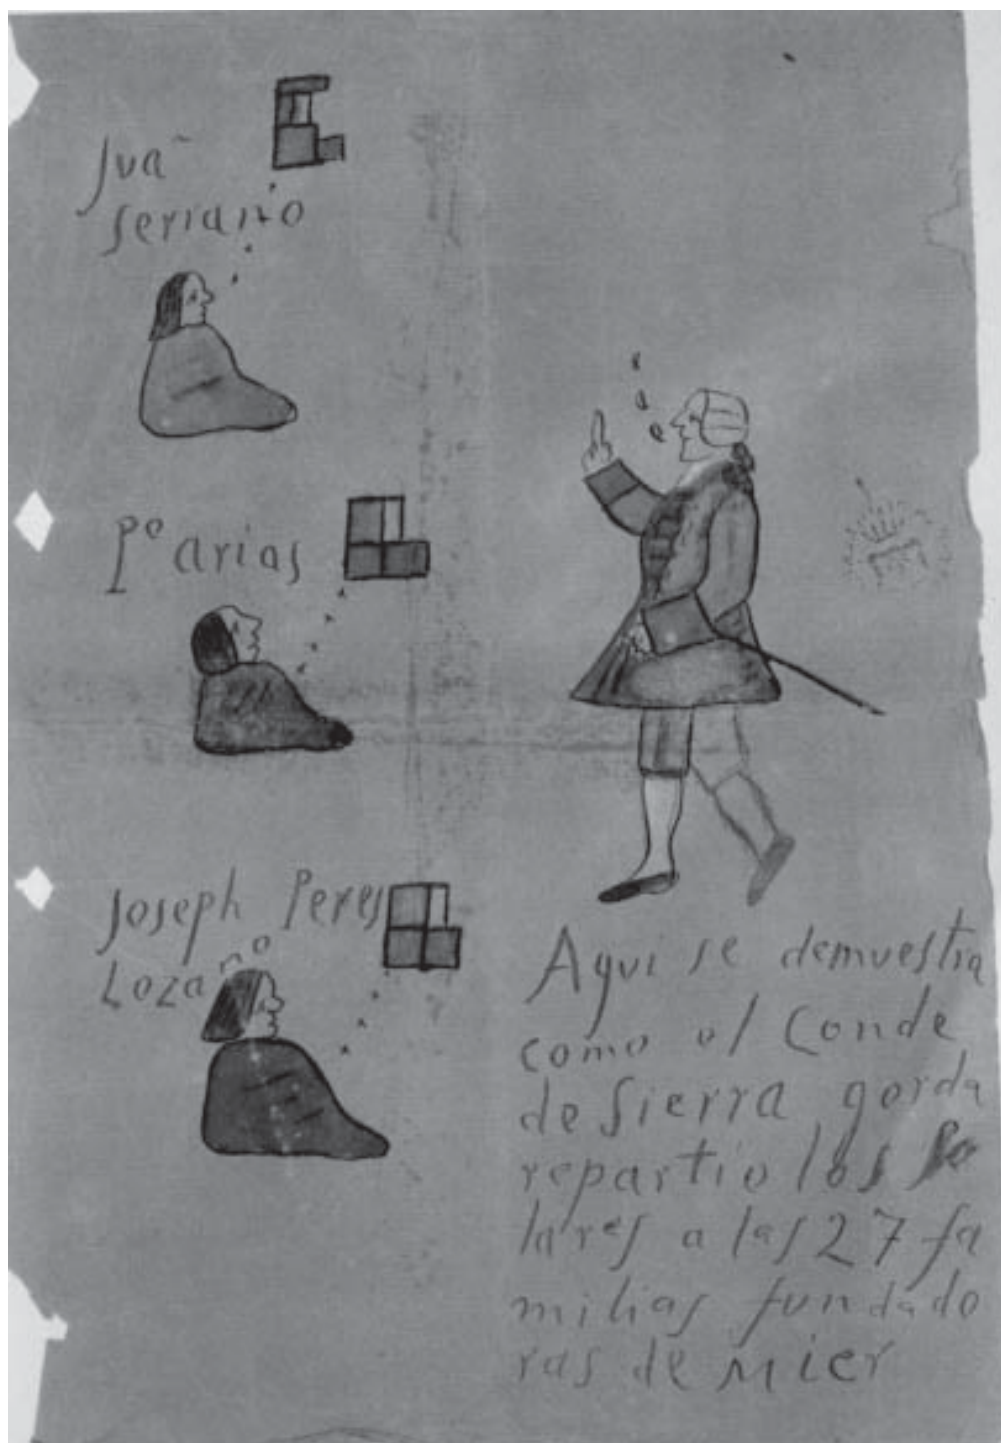 Juã
serrano
Pº arias
Joseph Peres
Lozano
Aqui se demuestra
como el Conde
de Sierra gorda
repartio los so
lares a las 27 fa
milias fundado
ras de Mier